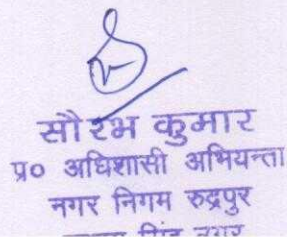 सौरभ कुमार
प्र० अधिशासी अभियन्ता
नगर निगम रुद्रपुर
सिंह नगर